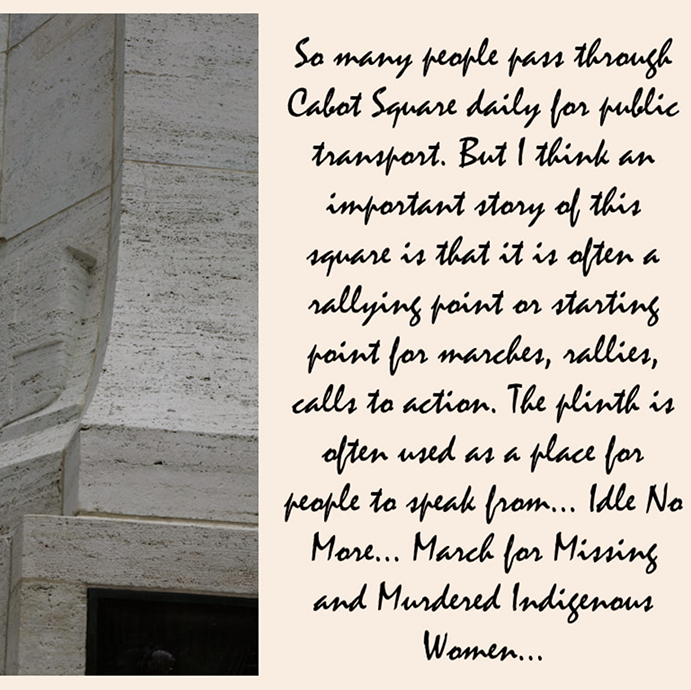 So many people pass through
Cabot Square daily for public
transport. But I think an
important story of this
square is that it is often a
rallying point or starting
point for marches, rallies,
calls to action. The plinth is
often used as a place for
people to speak from... Idle No
More... March for Missing
and Murdered Indigenous
Women...